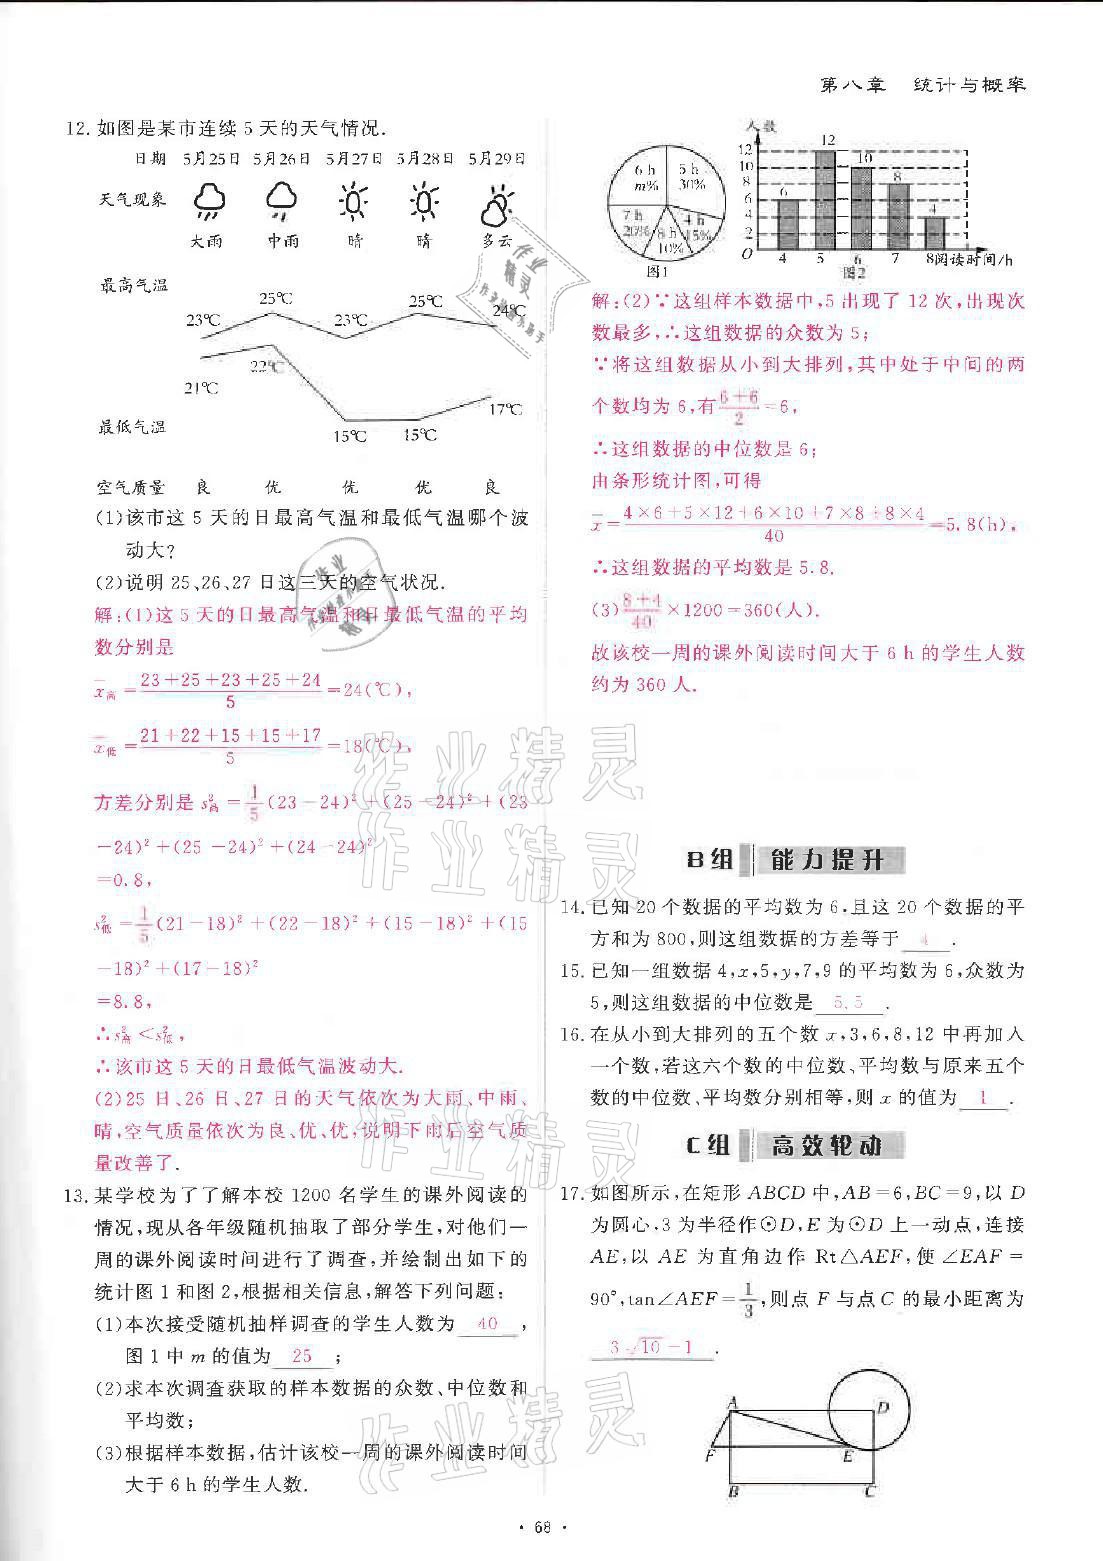 第八章 统计与概率
12.如图是某市连续5天的天气情况.
日期 5月25日 5月26日 5月27日 5月28日 5月29日
天气现象
大雨 中雨 晴 晴 多云
最高气温
23℃ 25℃ 23℃ 25℃ 24℃
21℃ 22℃ 15℃ 15℃ 17℃
最低气温
空气质量 良 优 优 优 良
(1)该市这5天的日最高气温和最低气温哪个波
动大?
(2)说明25、26、27日这三天的空气状况.
解:(1)这5天的日最高气温和日最低气温的平均
数分别是
x̄高=(23+25+23+25+24)/5=24(℃),
x̄低=(21+22+15+15+17)/5=18(℃),
方差分别是s²高=1/5(23-24)²+(25-24)²+(23
-24)²+(25-24)²+(24-24)²
=0.8,
s²低=1/5(21-18)²+(22-18)²+(15-18)²+(15
-18)²+(17-18)²
=8.8,
∴s²高<s²低,
∴该市这5天的日最低气温波动大.
(2)25日、26日、27日的天气依次为大雨、中雨、
晴,空气质量依次为良、优、优,说明下雨后空气质
量改善了.
13.某学校为了了解本校1200名学生的课外阅读的
情况,现从各年级随机抽取了部分学生,对他们一
周的课外阅读时间进行了调查,并绘制出如下的
统计图1和图2,根据相关信息,解答下列问题:
(1)本次接受随机抽样调查的学生人数为 40 ,
图1中m的值为 25 ;
(2)求本次调查获取的样本数据的众数、中位数和
平均数;
(3)根据样本数据,估计该校一周的课外阅读时间
大于6h的学生人数.
6h m% 5h 30% 7h 20% 8h 10% 4h 15%
图1
人数
12 10 8 6 4 2 O
6 12 10 8 4
4 5 6 7 8 阅读时间/h
图2
解:(2)∵这组样本数据中,5出现了12次,出现次
数最多,∴这组数据的众数为5;
∵将这组数据从小到大排列,其中处于中间的两
个数均为6,有(6+6)/2=6,
∴这组数据的中位数是6;
由条形统计图,可得
x̄=(4×6+5×12+6×10+7×8+8×4)/40=5.8(h),
∴这组数据的平均数是5.8.
(3)(8+4)/40×1200=360(人).
故该校一周的课外阅读时间大于6h的学生人数
约为360人.
B组 能力提升
14.已知20个数据的平均数为6,且这20个数据的平
方和为800,则这组数据的方差等于 4 .
15.已知一组数据4,x,5,y,7,9的平均数为6,众数为
5,则这组数据的中位数是 5.5 .
16.在从小到大排列的五个数x,3,6,8,12中再加入
一个数,若这六个数的中位数、平均数与原来五个
数的中位数、平均数分别相等,则x的值为 1 .
C组 高效轮动
17.如图所示,在矩形ABCD中,AB=6,BC=9,以D
为圆心,3为半径作⊙D,E为⊙D上一动点,连接
AE,以AE为直角边作Rt△AEF,使∠EAF=
90°,tan∠AEF=1/3,则点F与点C的最小距离为
3√10-1 .
A D
F E
B C
作业精灵
作业精灵
作业精灵
作业精灵
· 68 ·